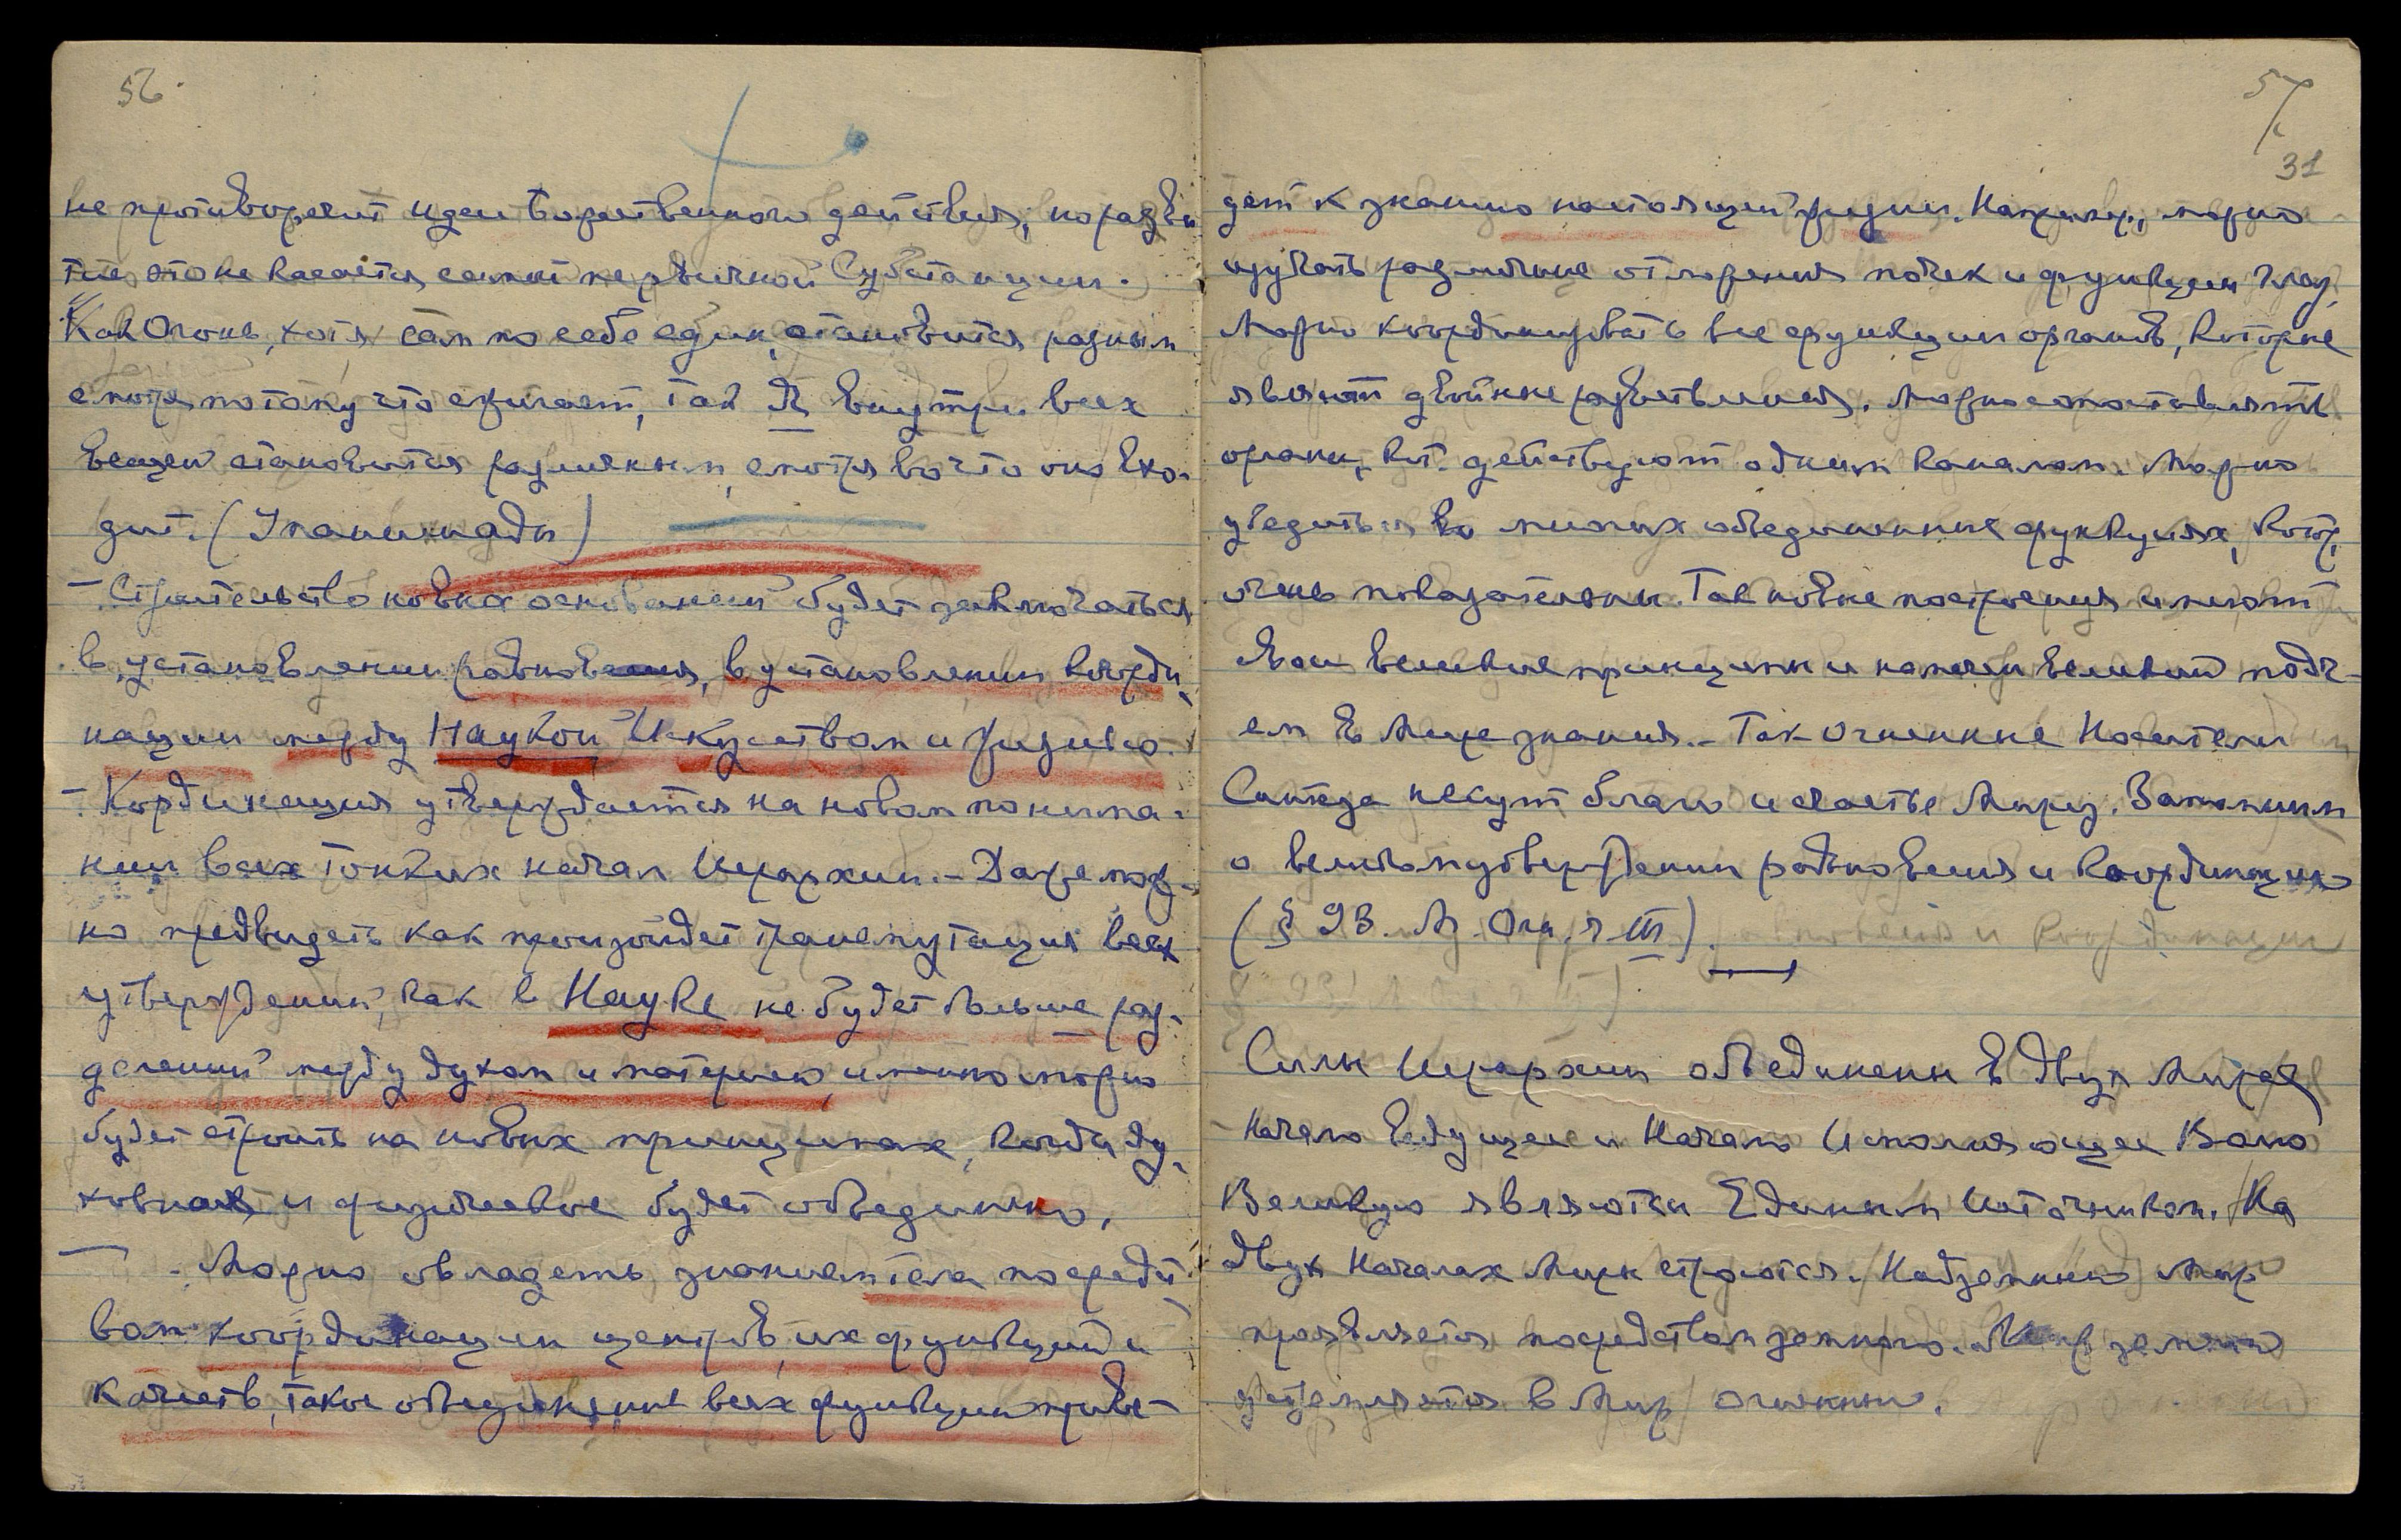 56.
не противоречит идеи Божественного действия, но разви
тие это не касается самой первичной Субстанции.
Как Огонь, хотя сам по себе един, становится разным
смотря потому что сжигает, так Я внутри всех
вещей становится различным, смотря во что оно вхо-
дит. (Упанишады)
- Строительство новых оснований будет заключаться
в установлении равновесия, в установлении коорди,
нации между Наукой, Искуством и физикою.
- Кординация утверждается на новом понима-
нии всех тонких начал Иерархии. - Даже мож-
но предвидеть как произойдет трансмутация всех
утверждений, как в Науке не будет больше раз-
делений между духом и материею, именно можно
будет строить на новых принципах, когда ду,
ховное и физическое будет объединено.
- Можно овладеть знанием тела посредст
вом координации центров, их функций и
качеств, такое объединение всех функции приве-
57.
31
дет к знанию настоящей физики. Наприм., можно
изучать различные отложения почек и функции глаз,
Можно координировать все функции органов, которые
являют двойные разветвления. Можно сопоставлять
органы, кот. действуют одним каналом. Можно
убедиться во многих объединенные функциях, котор,
очень показательны. Так новые построения имеют
свои великие принципы и начат великий подъ-
ем в Мире знания. - Так Огненные Носители
Синтеза несут благо и счастье Миру. Запомним
о великом утверждении равновесия и координации
(§ 93. М. Огн. ч. III).
Силы Иерархии объединены в двух Мирах
Начало Ведущее и Начало Исполняющее Волю
Великую являются Единым Источником. На
двух Началах Миры строются. Надземный Мир
проявляется посредством земного. Мир земной
устремляется в Мир Огненный.